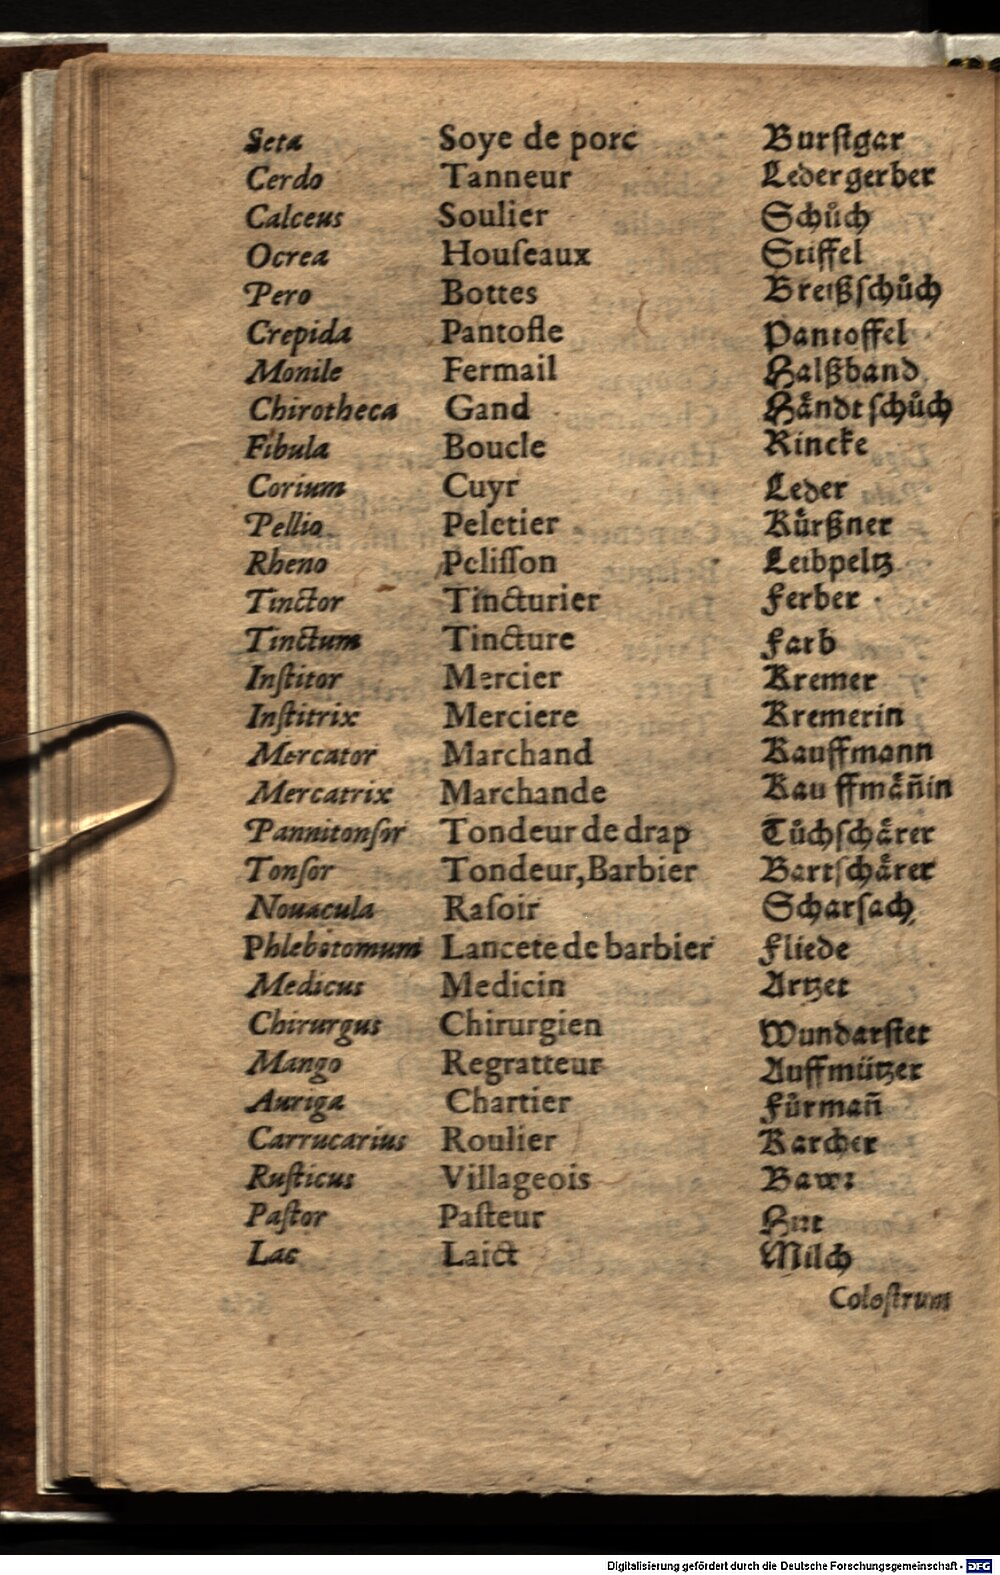 Seta Soye de porc Burſtgar
Cerdo Tanneur Ledergerber
Calceus Soulier Schůch
Ocrea Houſeaux Stiffel
Pero Bottes Breitßſchůch
Crepida Pantofle Pantoffel
Monile Fermail Halßband
Chirotheca Gand Håndtſchůch
Fibula Boucle Rincke
Corium Cuyr Leder
Pellio Peletier Kürßner
Rheno Peliſſon Leibpeltz
Tinctor Tincturier Ferber
Tinctum Tincture Farb
Inſtitor Mercier Kremer
Inſtitrix Merciere Kremerin
Mercator Marchand Kauffmann
Mercatrix Marchande Kauffmåñin
Pannitonſor Tondeur de drap Tůchſchårer
Tonſor Tondeur, Barbier Bartſchårer
Nouacula Raſoir Scharſach
Phlebotomum Lancete de barbier Fliede
Medicus Medicin Artzet
Chirurgus Chirurgien Wundartſtet
Mango Regratteur Auffmützer
Auriga Chartier Fůrmañ
Carrucarius Roulier Karcher
Ruſticus Villageois Bawr
Paſtor Paſteur Hirt
Lac Laict Milch
Coloſtrum
Digitalisierung gefördert durch die Deutsche Forschungsgemeinschaft - DFG